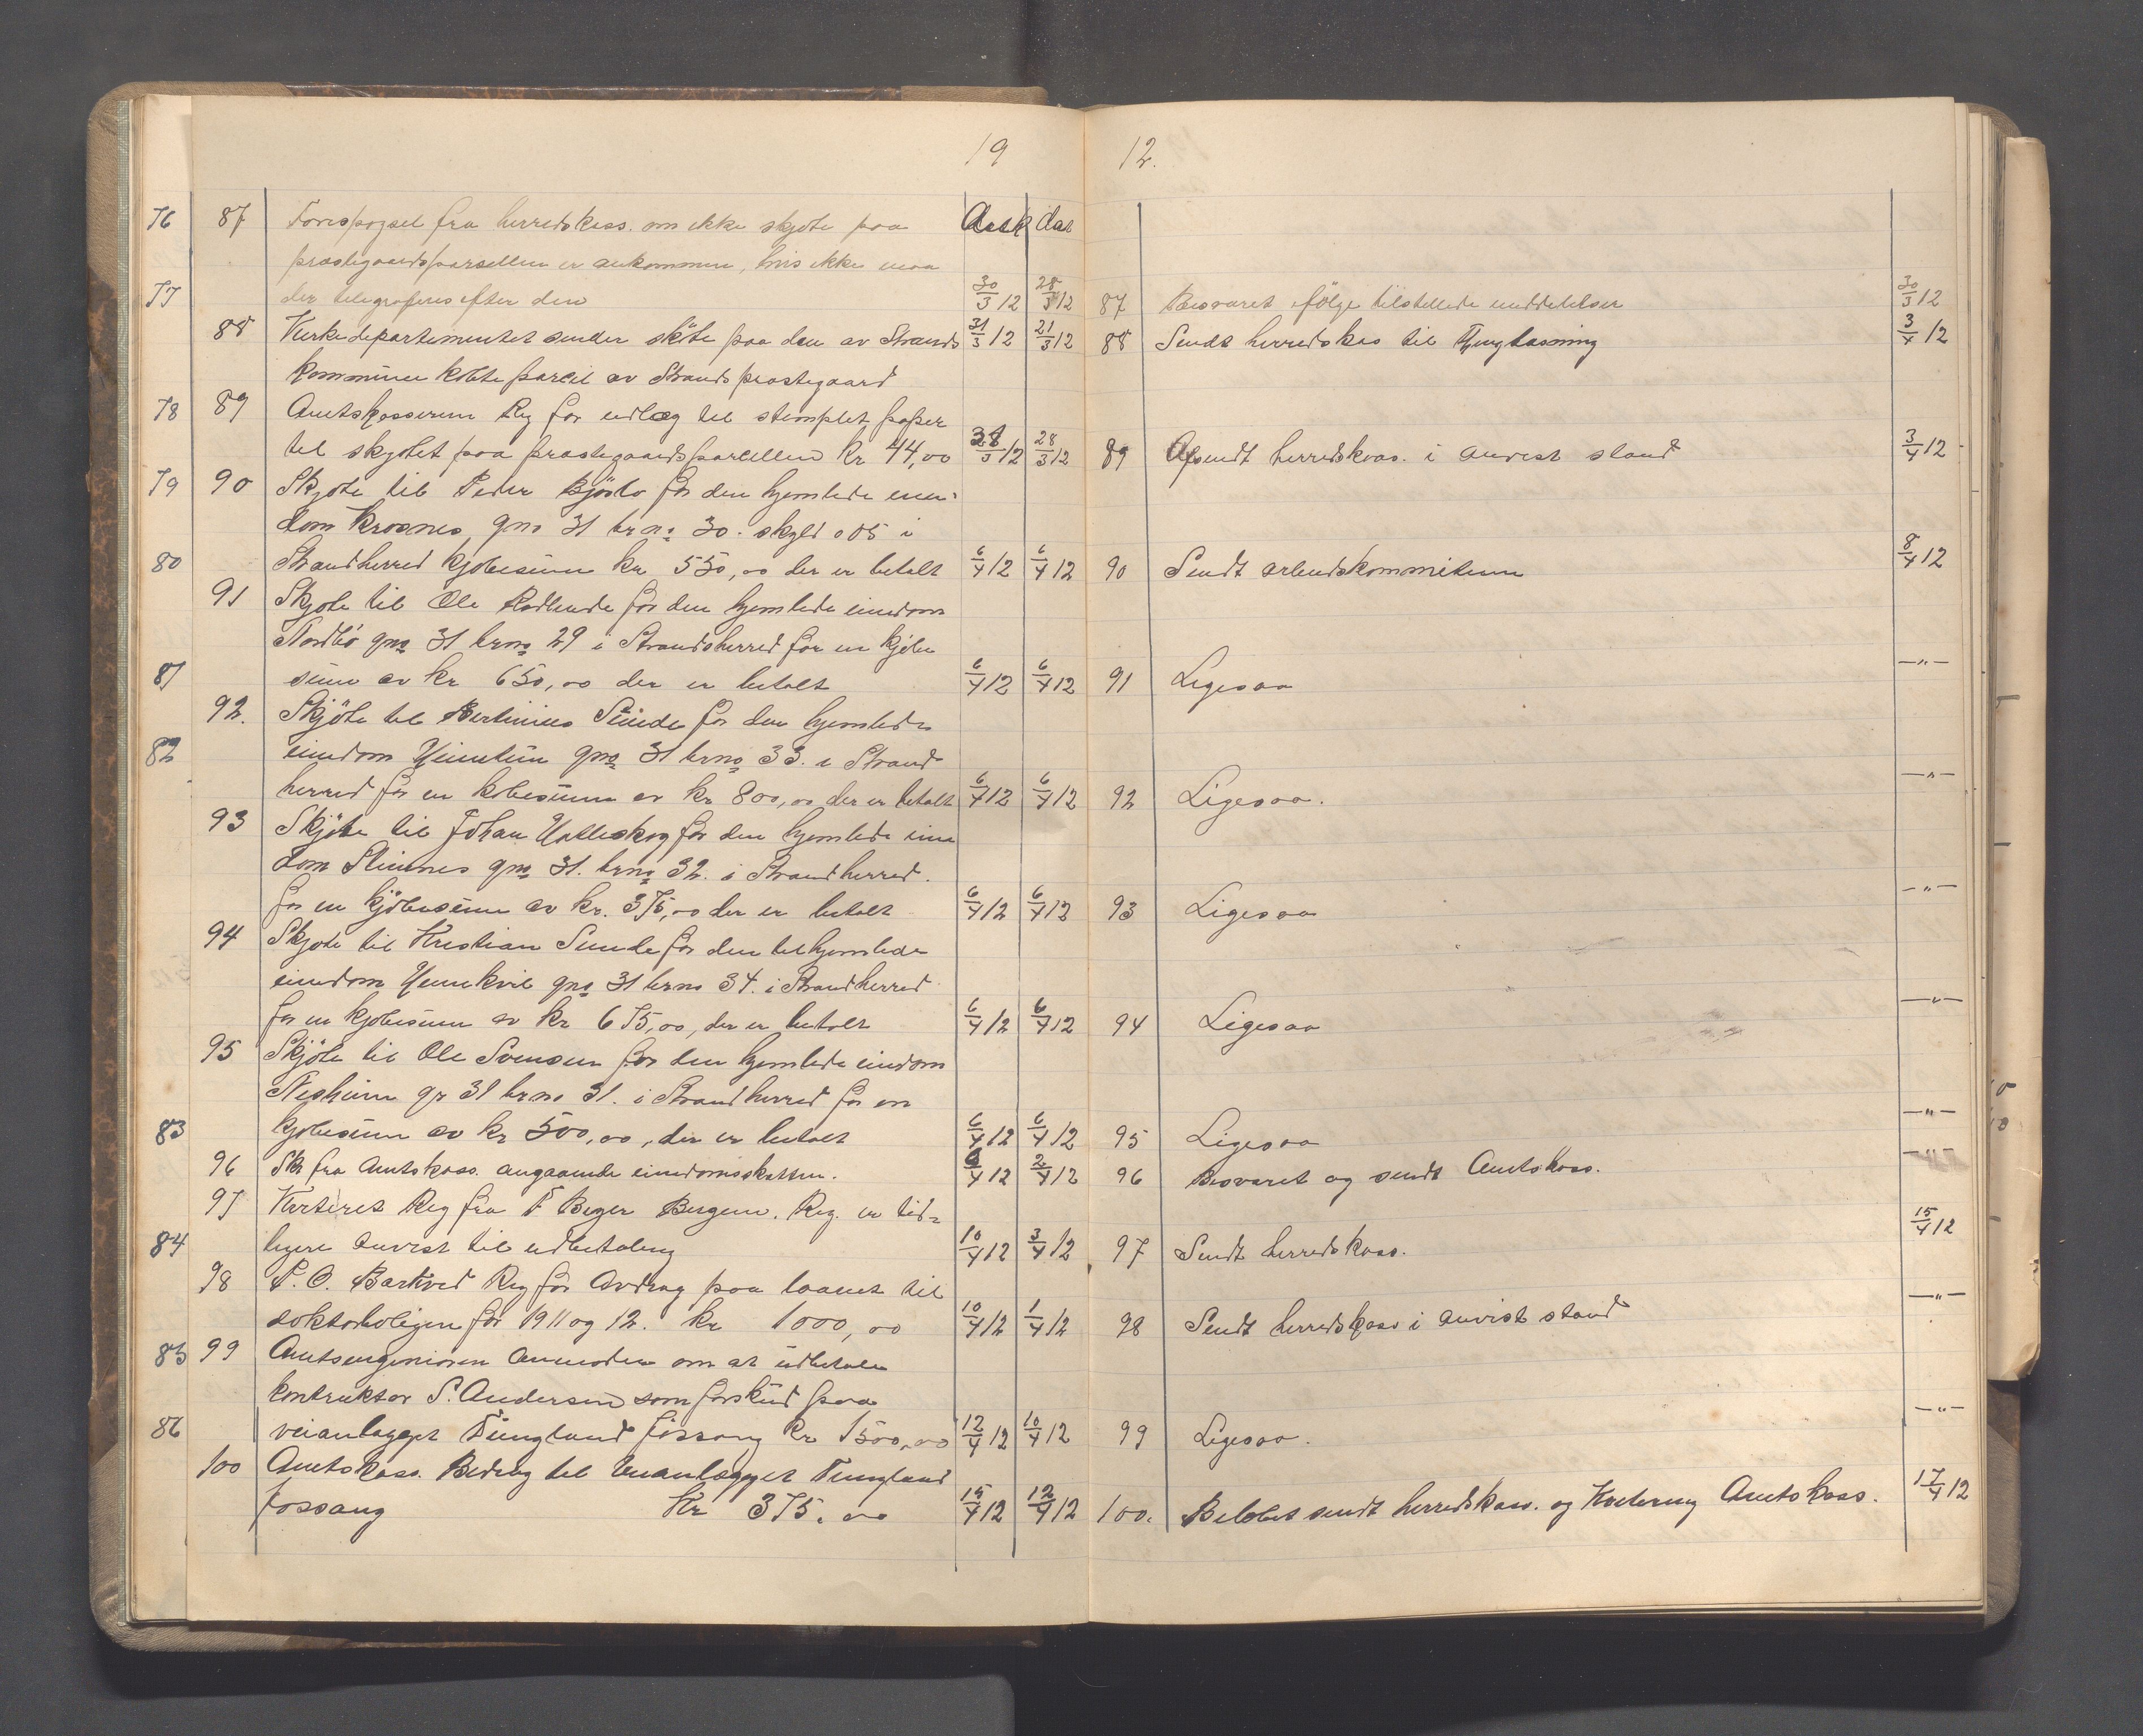 19 12.
76 87 Forespørsel fra herredskass. om ikke skjøte paa Ank dat
præstegaardsparsellen er ankommen, hvis ikke maa
77 der telegraferes efter den 30/3 12 28/3 12 87 Besvaret ifølge tilstellede meddelelser 30/3 12
88 Kirkedepartementet sender skøte paa den av Strands 31/3 12 21/3 12 88 Sendt herredskas til tinglæsning 3/4 12
kommune købte parcel av Strands præstegaard
78 89 Amtskassereren Rg for utlæg til stemplet papir
til skjøtet paa præstegaardsparcellen kr 44,00 3/12 28/3 12 89 Afsendt herredskas. i anvist stand 3/4 12
79 90 Skjøte til Peder for den hjemlede eien-
dom Krosnes gno 31 brno 30. skyld 005 i
80 Strand herred kjøbesum kr 550,00 der er betalt 6/4 12 6/4 12 90 Sendt arbeidskommiteen 8/4 12
91 Skjøte til Ole for den hjemlede eiendom
Nordbø gno 31 brno 29 i Strandsherred for en kjøbe
81 sum av kr 650,00 der er betalt 6/4 12 6/4 12 91 Ligesaa —"—
92. Skjøte til Bertinius Sunde for den hjemlede
82 eiendom gno 31 brno 33. i Strand
herred for en købesum av kr 800,00 der er betalt 6/4 12 6/4 12 92 Ligesaa. —"—
93 Skjøte til Johan for den hjemlede eien
dom Steinnes gno 31. brno 32. i Strand herred.
for en kjøbesum av kr. 375,00 der er betalt 6/4 12 6/4 12 93 Ligesaa —"—
94 Skjøte til Kristian Sunde for den til hjemlede
eiendom gno 31 brno 34. i Strand herred
for en kjøbesum av kr 675,00, der er betalt 6/4 12 6/4 12 94 Ligesaa —"—
95 Skjøte til Ole Svensen for den hjemlede eiendom
Nesheim gr 31 brno 31. i Strand herred for en
83 kjøbesum av kr 500,00, der er betalt 6/4 12 6/4 12 95 Ligesaa —"—
96 Skr fra Amtskass. angaaende eiendomsskatten. 4 12 2/4 12 96 Besvaret og sendt Amtskass. —"—
97 Kvteret Reg fra F Beyer Bergen. Reg. er tid-
84 ligere anvist til udbetaling 10/4 12 3/4 12 97 Sendt herredskass. 15/4 12
98 P. O. Barkved Reg for Avdrag paa laanet til
doktorboligen for 1911 og 12. kr 1000,00 10/4 12 1/4 12 98 Sendt herredskass i anvist stand —"—
85 99 Amtsingeniøren anmoder om at udbetale
kontraktør S. Andersen som forskud paa
86 veianlægget Tungland Fossang kr 1500,00 12/4 12 10/4 12 99 Ligesaa. —"—
100 Amtskass. Bidrag til Veianlægget Tungland
Fossang Kr 375.00 15/4 12 12/4 12 100. Beløbet sendt herredskass. og Kvitering Amtskass. 17/4 12